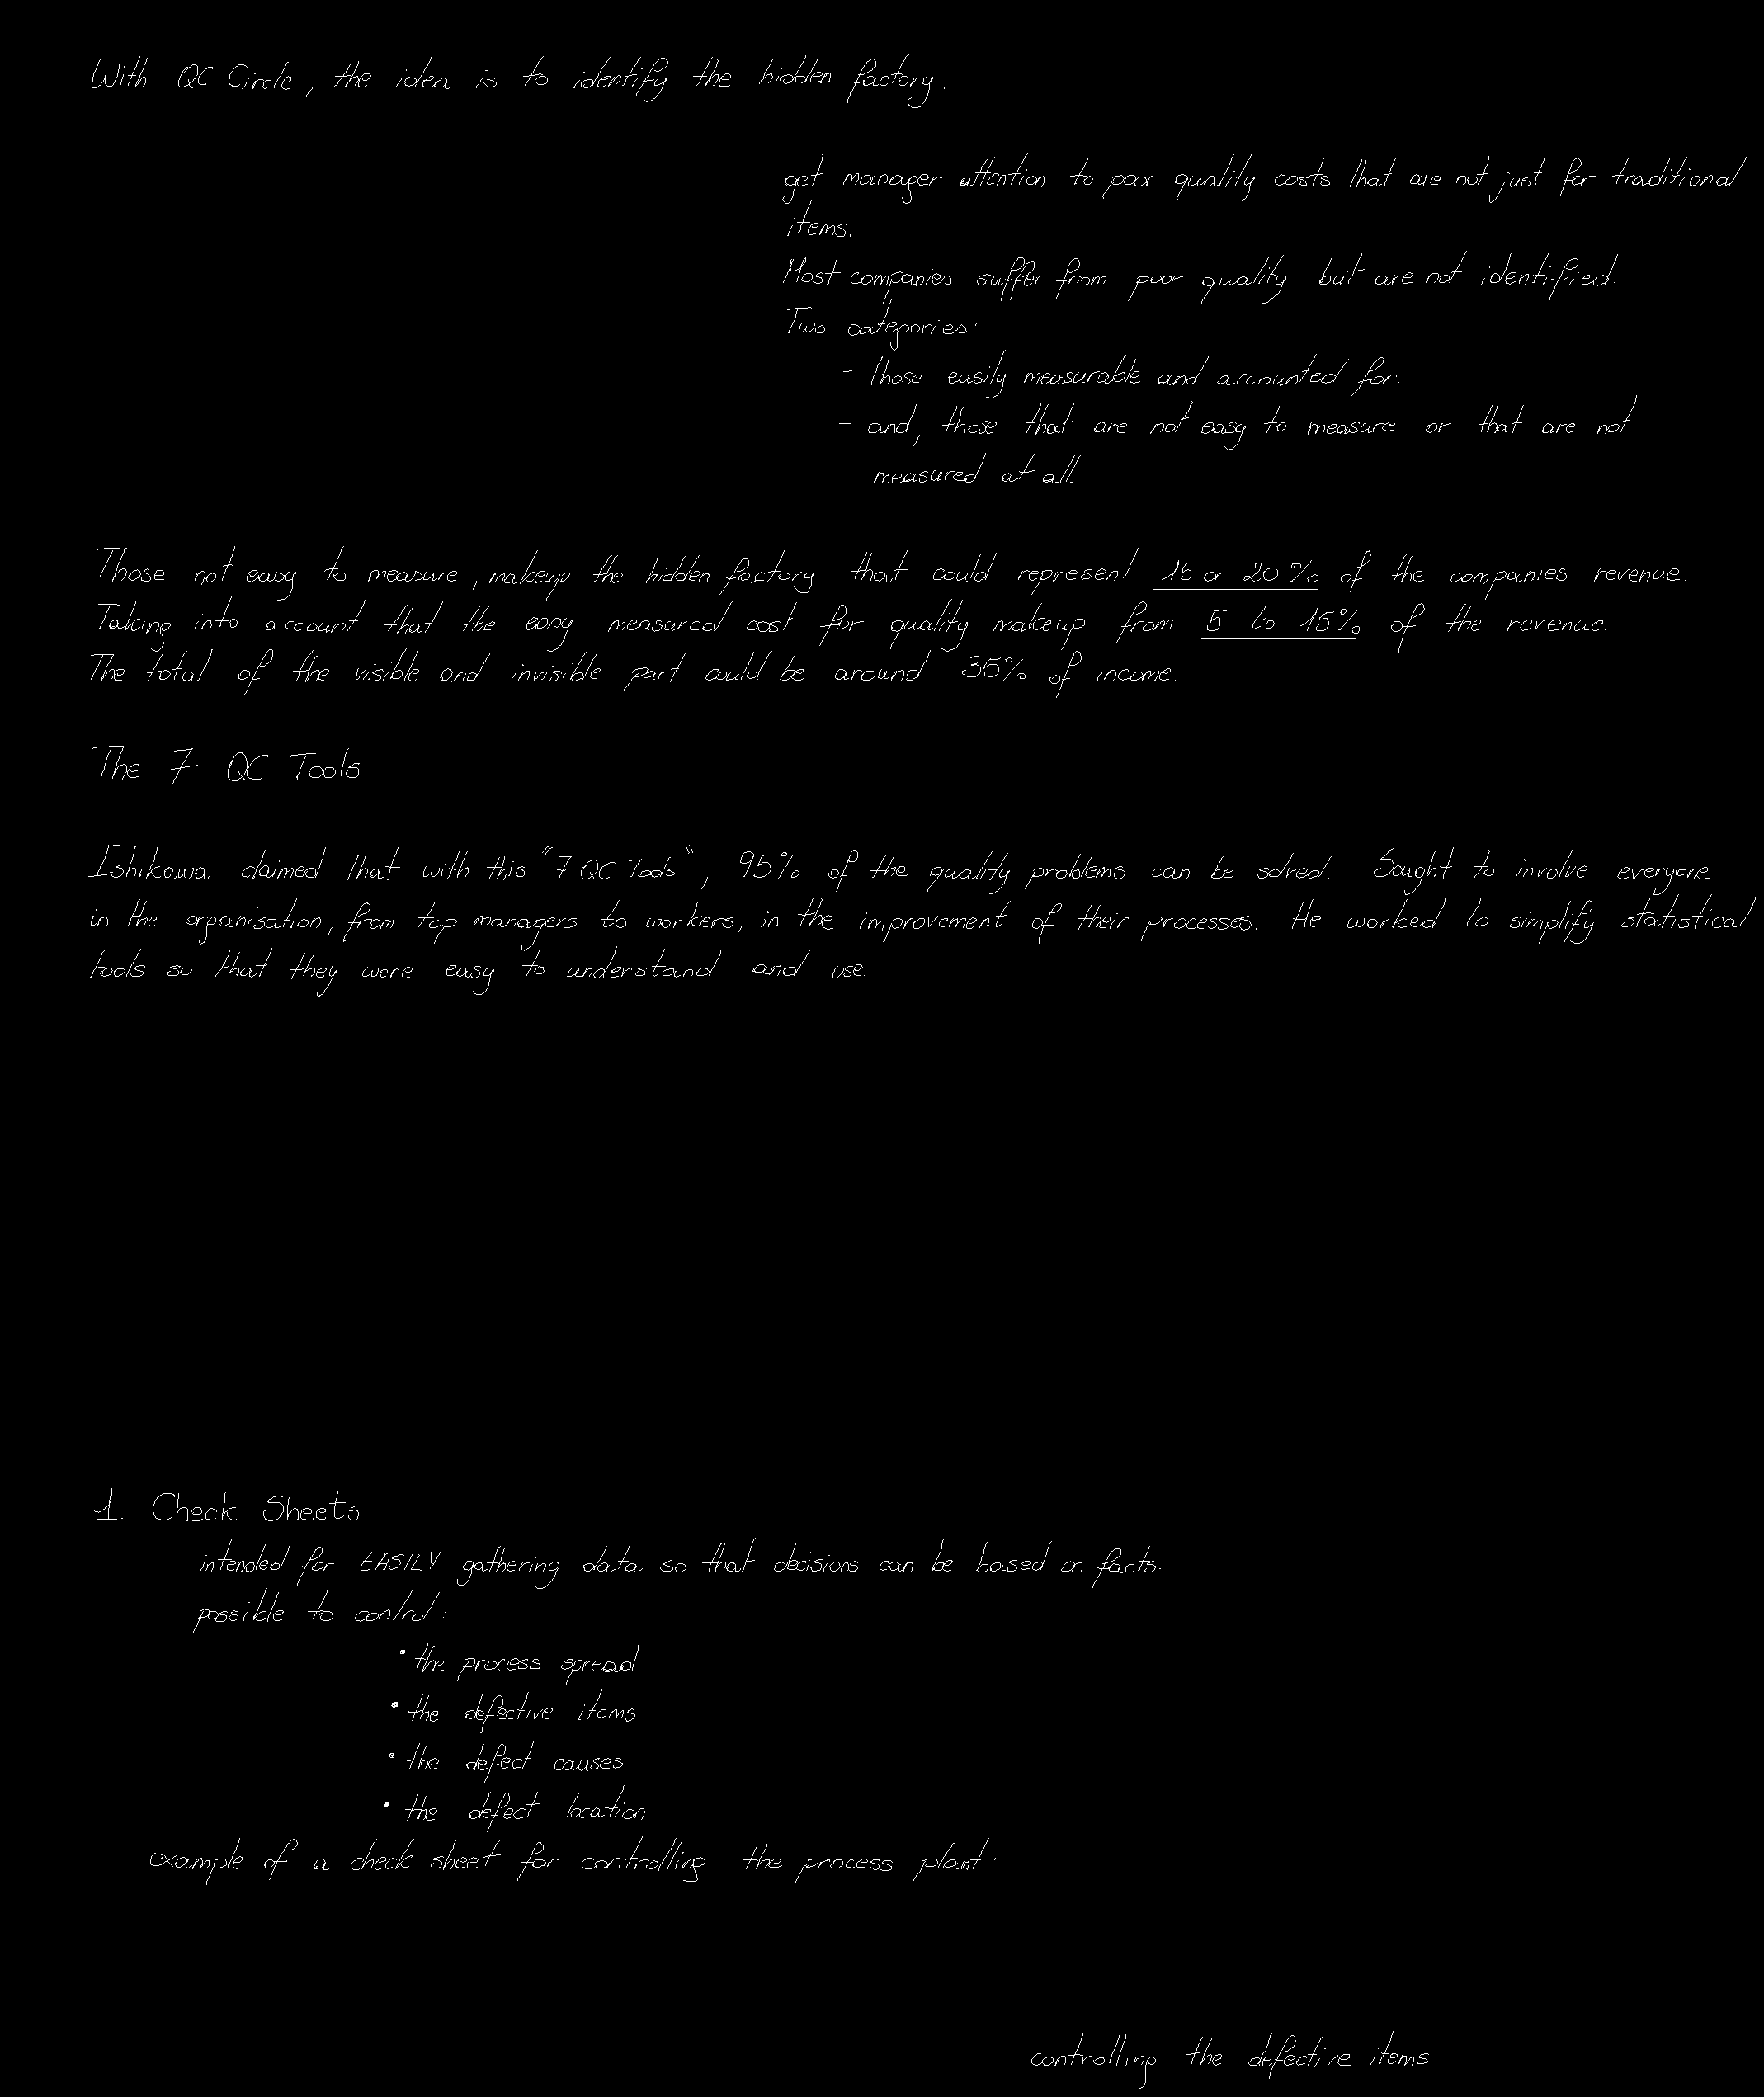 With QC Circle, the idea is to identify the hidden factory.
get manager attention to poor quality costs that are not just for traditional
items.
Most companies suffer from poor quality but are not identified.
Two categories:
- those easily measurable and accounted for.
- and, those that are not easy to measure or that are not
measured at all.
Those not easy to measure, makeup the hidden factory that could represent 15 or 20% of the companies revenue.
Taking into account that the easy measured cost for quality makeup from 5 to 15% of the revenue.
The total of the visible and invisible part could be around 35% of income.
The 7 QC Tools
Ishikawa claimed that with this "7 QC Tools", 95% of the quality problems can be solved. Sought to involve everyone
in the organisation, from top managers to workers, in the improvement of their processes. He worked to simplify statistical
tools so that they were easy to understand and use.
1. Check Sheets
intended for EASILY gathering data so that decisions can be based on facts.
possible to control:
• the process spread
• the defective items
• the defect causes
• the defect location
example of a check sheet for controlling the process plant:
controlling the defective items: